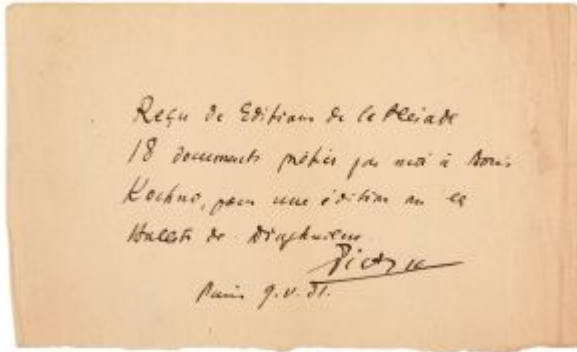 Reçu de Editions de la Pleiade
18 documents prêtés par moi à Boris
Kochno, pour une édition sur le
Ballets de Diaghilew
Picasso
Paris 9.V.31.